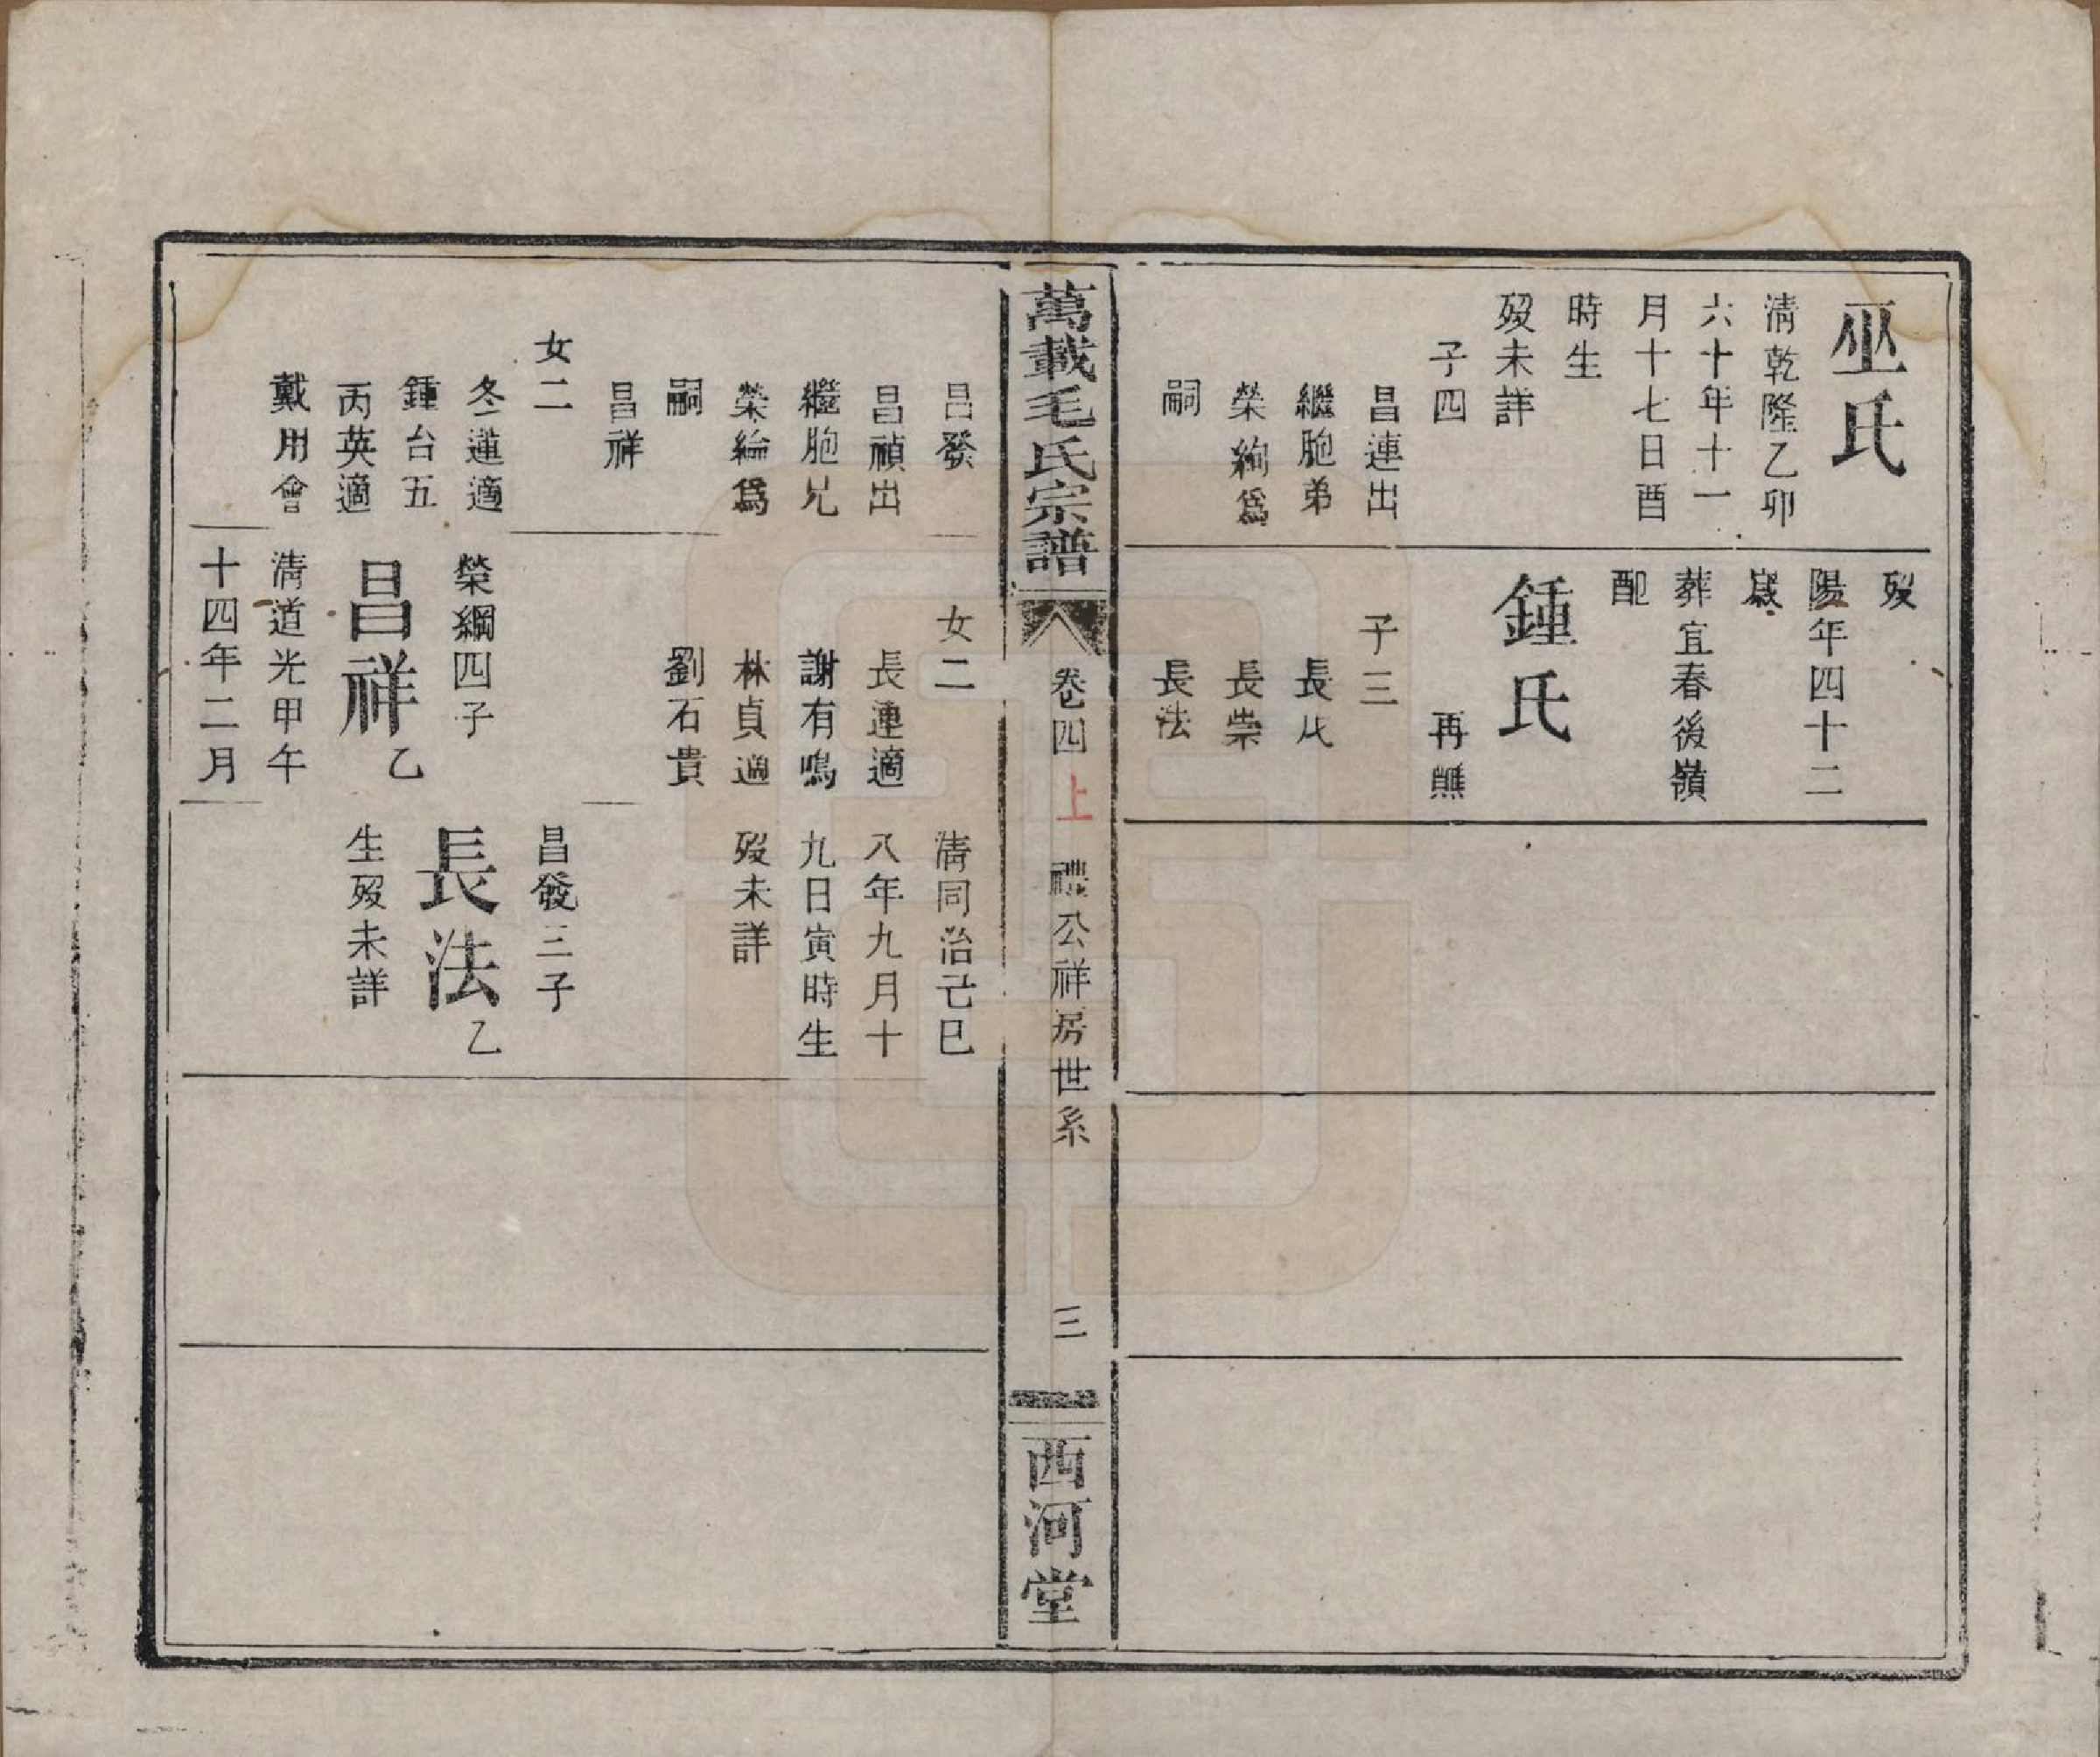 巫氏
清乾隆乙卯
六十年十一
月十七日酉
時生
歿未詳
子四
昌連出
繼胞弟
榮絢爲
嗣
歿
陽年四十二
歲
葬宜春後嶺
配
鍾氏
再醮
子三
長
長崇
長法
萬載毛氏宗譜
卷四
上
禮公祥房世系
三
西河堂
昌發
昌禎出
繼胞兄
榮綸爲
嗣
昌祥
女二
冬蓮適
鍾台五
丙英適
戴用會
女二
長連適
謝有鳴
林貞適
劉石貴
榮綱四子
昌祥 乙
清道光甲午
十四年二月
清同治己巳
八年九月十
九日寅時生
歿未詳
昌發三子
長法 乙
生歿未詳